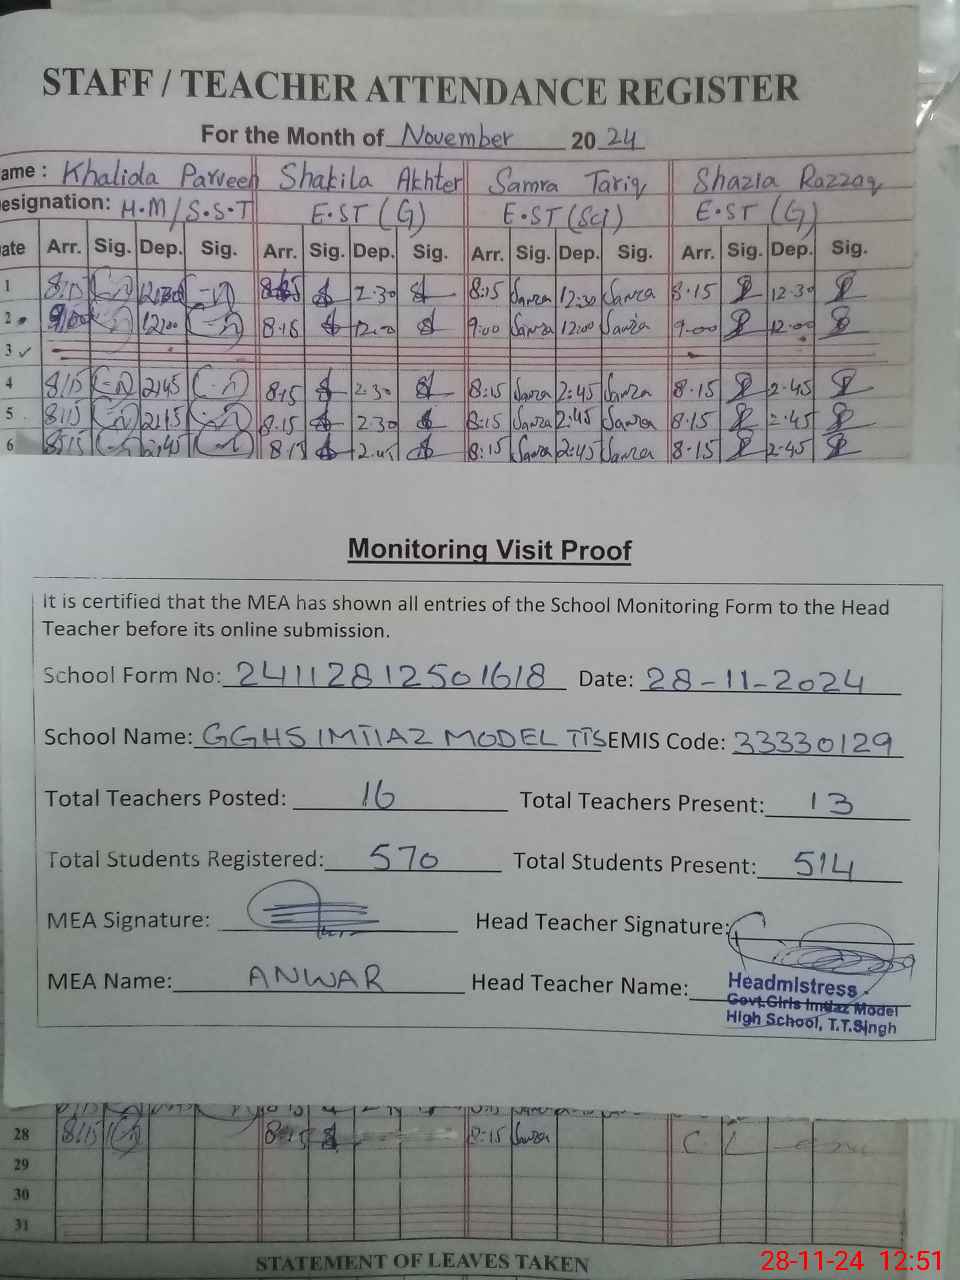 STAFF / TEACHER ATTENDANCE REGISTER
For the Month of November 2024
ame : Khalida Parveen Shakila Akhter Samra Tariq Shazia Razzaq
esignation: H.M/S.S.T E.ST (G) E.ST (Sci) E.ST (G)
ate Arr. Sig. Dep. Sig. Arr. Sig. Dep. Sig. Arr. Sig. Dep. Sig. Arr. Sig. Dep. Sig.
1 8:15 12:30 2.30 8:15 Samra 12:30 Samra 8.15 12.30
2 9:00 12:00 8.15 9:00 Samra 12:00 Samra 9.00 12.00
3
4 8:15 2:45 8.15 2.30 8:15 Samra 2:45 Samra 8.15 2.45
5 8:15 2:45 8.15 2.30 8:15 Samra 2:45 Samra 8.15 2.45
6 8:15 2:45 8.15 2.45 8:15 Samra 2:45 Samra 8.15 2.45
Monitoring Visit Proof
It is certified that the MEA has shown all entries of the School Monitoring Form to the Head
Teacher before its online submission.
School Form No: 24112812501618 Date: 28-11-2024
School Name: GGHS IMTIAZ MODEL TTS EMIS Code: 33330129
Total Teachers Posted: 16 Total Teachers Present: 13
Total Students Registered: 570 Total Students Present: 514
MEA Signature: Head Teacher Signature:
MEA Name: ANWAR Head Teacher Name:
Headmistress
Govt.Girls Imtiaz Model
High School, T.T.Singh
28 8:15 8.15 8:15 Samra C L
29
30
31
STATEMENT OF LEAVES TAKEN
28-11-24 12:51